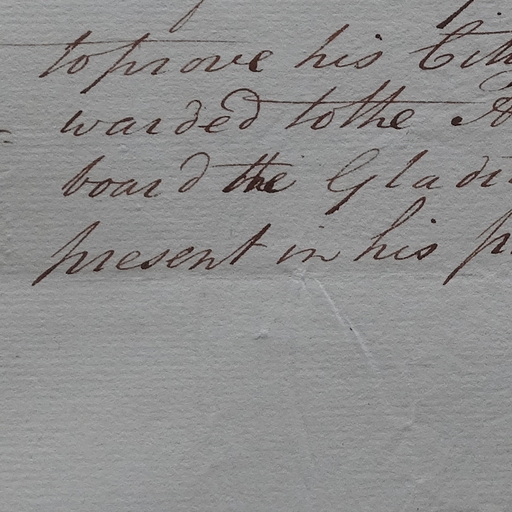 to prove his Citi
warded to the A
board the Gladi
present in his p